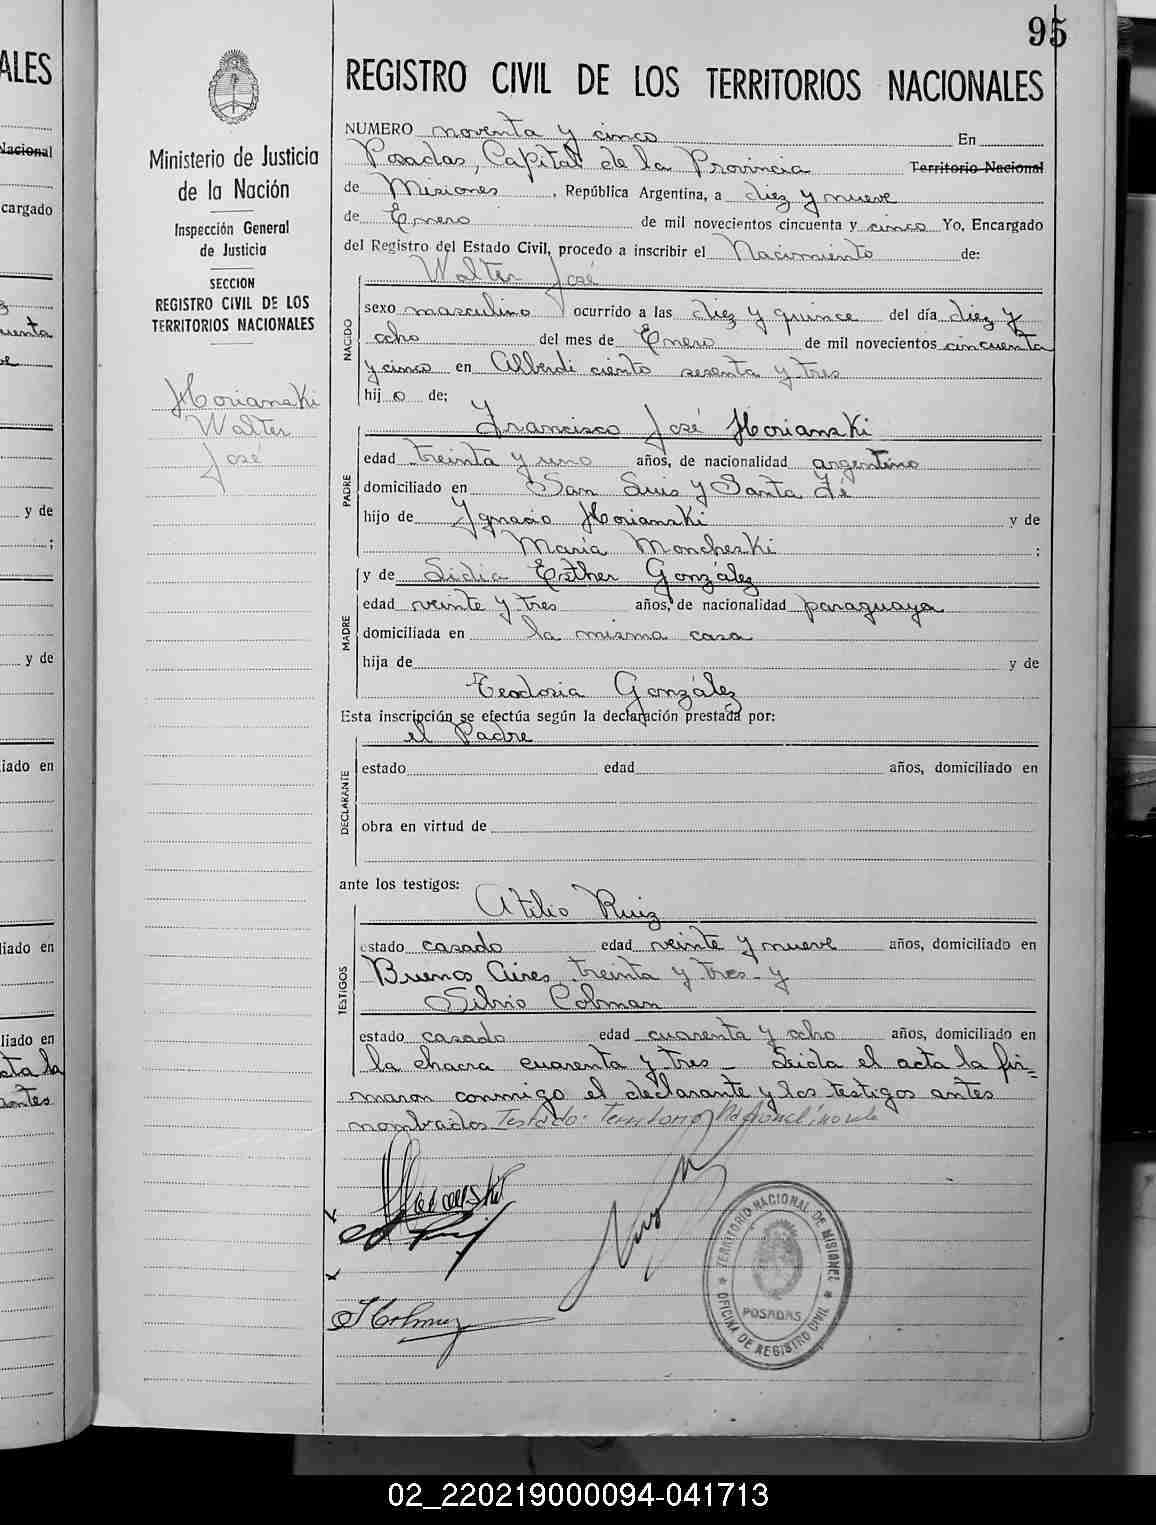 95
REGISTRO CIVIL DE LOS TERRITORIOS NACIONALES
Ministerio de Justicia
de la Nación
Inspección General
de Justicia
SECCION
REGISTRO CIVIL DE LOS
TERRITORIOS NACIONALES
Horianski
Walter
José
NUMERO noventa y cinco En
Posadas, Capital de la Provincia Territorio Nacional
de Misiones, República Argentina, a diez y nueve
de Enero de mil novecientos cincuenta y cinco Yo, Encargado
del Registro del Estado Civil, procedo a inscribir el Nacimiento de:
Walter José
NACIDO
sexo masculino ocurrido a las diez y quince del día diez y
ocho del mes de Enero de mil novecientos cincuenta
y cinco en Alberdi ciento sesenta y tres
hij o de:
Francisco José Horianski
PADRE
edad treinta y uno años, de nacionalidad argentino
domiciliado en San Luis y Santa Fé
hijo de Ygnacio Horianski y de
María Moncheski ;
y de Lidia Esther González
MADRE
edad veinte y tres años, de nacionalidad paraguaya
domiciliada en la misma casa
hija de y de
Teodosia González
Esta inscripción se efectúa según la declaración prestada por:
el Padre
DECLARANTE
estado edad años, domiciliado en
obra en virtud de
ante los testigos:
Atilio Ruiz
TESTIGOS
estado casado edad veinte y nueve años, domiciliado en
Buenos Aires treinta y tres y
Silvio Colman
estado casado edad cuarenta y ocho años, domiciliado en
la chacra cuarenta y tres _ Leida el acta la fir=
maron conmigo el declarante y los testigos antes
nombrados Testado: Territorio Nacional: no vale
TERRITORIO NACIONAL DE MISIONES
POSADAS
OFICINA DE REGISTRO CIVIL
ALES
Nacional
cargado
y de
;
y de
iado en
liado en
liado en
acta la
antes
02_220219000094-041713